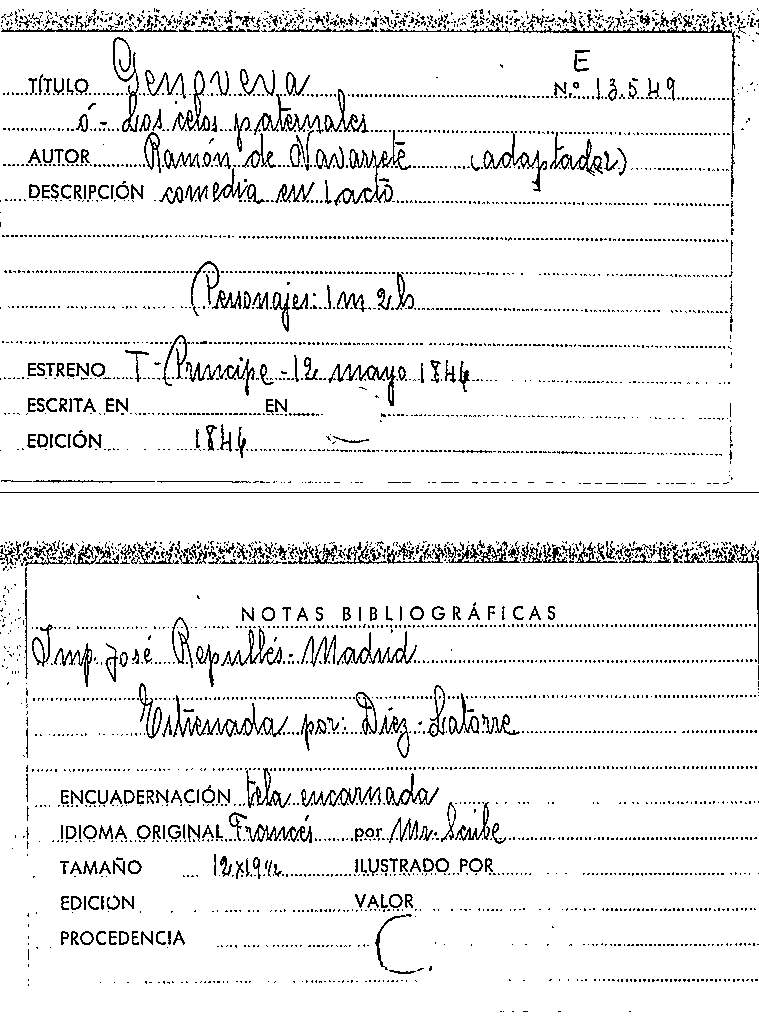 E
TÍTULO Genoveva N.º 13.549
ó - Los celos paternales
AUTOR Ramón de Navarrete (adaptador)
DESCRIPCIÓN comedia en 1 acto
Personajes: 1 m 2 h
ESTRENO T - Príncipe - 12 mayo 1846
ESCRITA EN EN
EDICIÓN 1846
NOTAS BIBLIOGRÁFICAS
Imp. José Repullés - Madrid
Estrenada por: Díez - Latorre
ENCUADERNACIÓN tela encarnada
IDIOMA ORIGINAL Francés por Mr. Scribe
TAMAÑO 12x19 ILUSTRADO POR
EDICIÓN VALOR
PROCEDENCIA C.